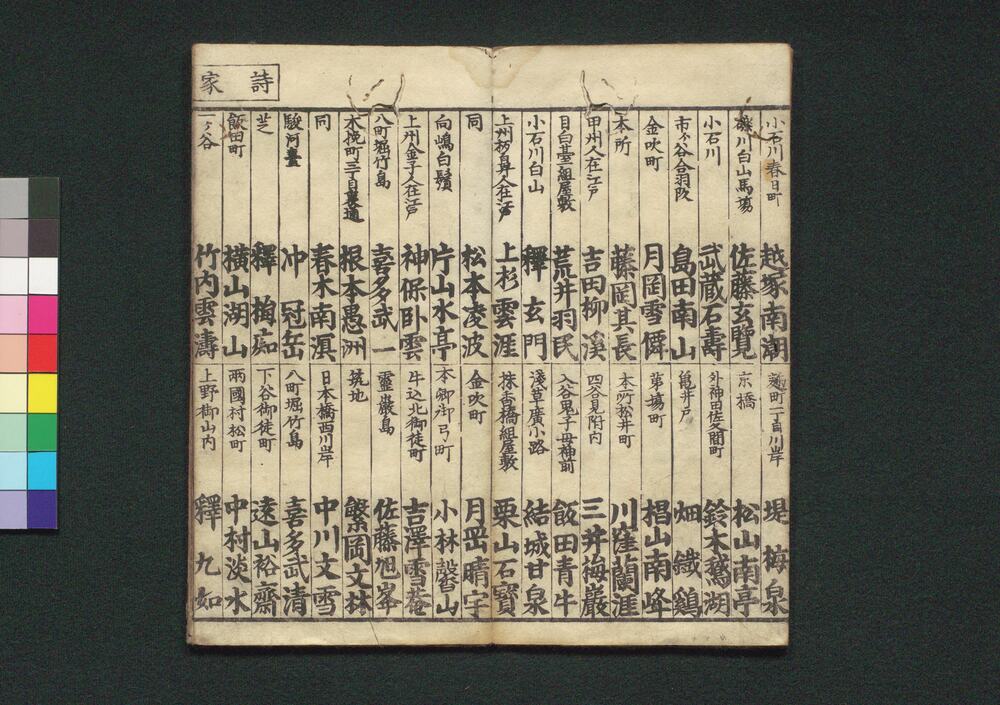 詩家
小石川春日町 越塚南湖
礫川白山馬塲 佐藤玄覽
小石川 武蔵石壽
市ヶ谷合羽坂 島田南山
金吹町 月岡雪僲
本所 藤岡其長
甲州人在江戸 吉田柳溪
目白臺二組屋敷 荒井羽民
小石川白山 釋玄門
上州杤自井人在江戸 上杉雲涯
同 松本凌波
向嶋白鬚 片山水亭
上州金子人在江戸 神保卧雲
八町堀竹島 喜多武一
木挽町三丁目裏通 根本愚洲
同 春木南溟
駿河臺 冲冠岳
芝 釋梅痴
飯田町 横山湖山
一ヶ谷 竹内雲濤
麹町一丁目川岸 堤梅泉
京橋 松山南亭
外神田佐久間町 鈴木鵞湖
亀井戸 畑鐵鷄
第六塲町 椙山南峰
本所松井町 川窪蘭涯
四谷見附内 三井梅巖
入谷鬼子母神前 飯田青牛
淺草廣小路 結城甘泉
抹香橋組屋敷 栗山石寳
金吹町 月岡晴宇
本郷御弓町 小林磬山
牛込北御徒町 吉澤雪菴
靈巖島 佐藤旭峯
筑地 繁岡文林
日本橋西川岸 中川文雪
八町堀竹島 喜多武清
下谷御徒町 遠山裕齋
兩國村松町 中村淡水
上野御山内 釋九如